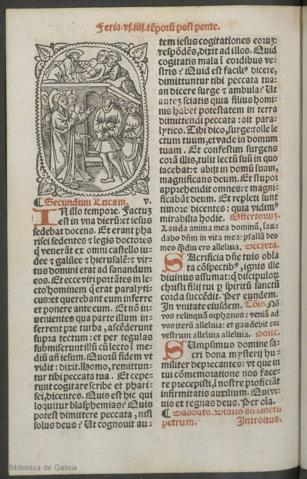 Feria .vj. iiij. tēporū post pente.
Secundum Lucam. v.
IN illo tempore. Factuz
est in vna dierū: et iesus
sedebat docens. Et erant pha
risei sedentes ⁊ legis doctores
q̄ venerāt ex omni castello iu
dee ⁊ galilee ⁊ hierusalē: ⁊ vir
tus domini erat ad sanandum
eos. Et ecce viri portātes in le
cto hominem q̄ erat paralyti
cus: et querebant eum inferre
et ponere ante eum. Et nō in-
uenientes qua parte illum in-
ferrent pre turba, ascēderunt
supra tectum: et per tegulas
submiserunt illū cū lecto ī me
diū añ iesum. Quorū fidem vt
vidit: dixit. Homo, remittun-
tur tibi peccata tua. Et cepe-
runt cogitare scribe et phari-
sei, dicentes. Quis est hic qui
loquitur blasphemias? Quis
potest dimittere peccata, nisi
solus deus? Ut cognouit au-
tem iesus cogitationes eoruz:
respōdēs, dixit ad illos. Quid
cogitatis mala ī cordibus ve-
stris? Quid est facilius dicere,
dimittuntur tibi peccata tua:
an dicere surge ⁊ ambula? Ut
autez sciatis quia filius homi-
nis habet potestatem in terra
dimittendi peccata: ait para-
lytico. Tibi dico, surge: tolle le
ctum tuum, et vade in domum
tuam. Et confestim surgens
corā illis, tulit lectū suū in quo
iacebat: ⁊ abijt in domū suam,
magnificans deum. Et stupor
apprehendit omnes: ⁊ magni-
ficabāt deum. Et repleti sunt
timore dicentes: quia vidimꝰ
mirabilia hodie. Offertorium.
Lauda anima mea dominū, lau-
dabo dñm in vita mea: psallā deo
meo q̄diu ero alleluia. Secreta.
SAcrificia dñe tuis obla
ta cōspectibꝰ, ignis ille
diuinus assumat: q̄ discipuloꝝ
christi filij tui ꝑ spiritū sanctū
corda succēdit. Per eundem.
In vnitate eiusdem. Cōio.
Nō vos relinquā orphanos: veniā ad
vos iterū alleluia: et gaudebit cor
vestrum alleluia alleluia.
SUmpsimus domine sa-
cri dona mysterij hu-
militer deprecantes: vt que in
tui cōmemorationē nos face-
re precepisti, ī nostre proficiāt
infirmitatis auxilium. Qui vi-
uis et regnas deus. Per oīa.
Sabbato. Statio ad sanctū
petrum. Introitus.
Biblioteca de Galicia